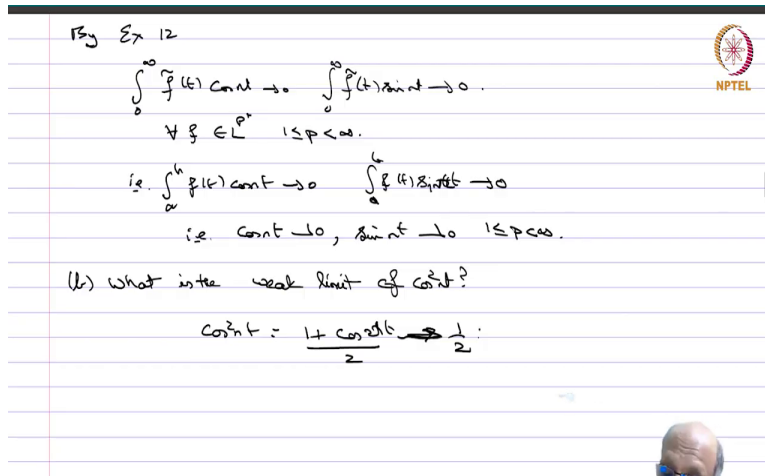 By Ex 12
NPTEL
∫₀^∞ f̃(t) cos nt → 0   ∫₀^∞ f̃(t) sin nt → 0.
∀ f ∈ L^{p*}   1 ≤ p < ∞.
i.e. ∫ₐᵇ f(t) cos nt → 0   ∫ₐᵇ f(t) sin nt → 0
i.e. cos nt ⇀ 0, sin nt ⇀ 0   1 ≤ p < ∞.
(b) What is the weak limit of cos²nt?
cos²nt = (1 + cos 2nt)/2 ⇀ 1/2.